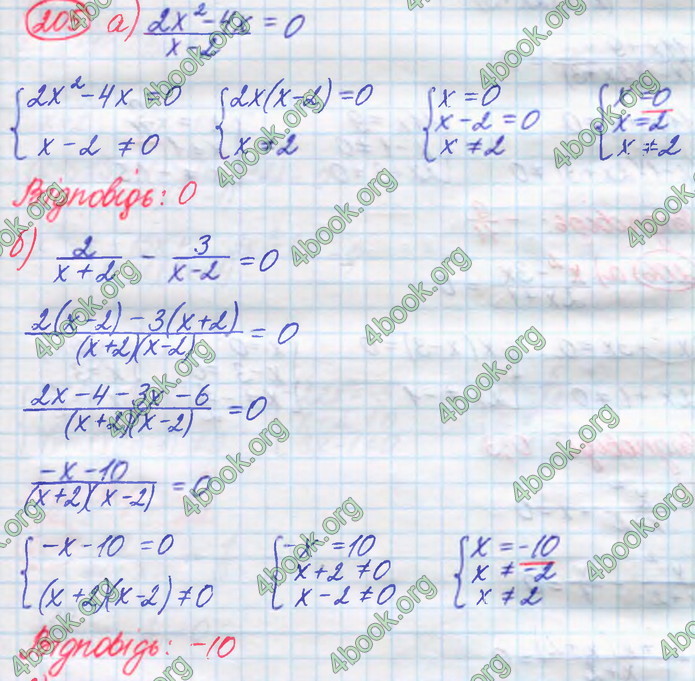 205 а) (2x² - 4x)/(x - 2) = 0
{ 2x² - 4x = 0 { 2x(x - 2) = 0 { x = 0 { x = 0
x - 2 ≠ 0 x ≠ 2 x - 2 = 0 x = 2
x ≠ 2 x ≠ 2
Відповідь: 0
б) 2/(x + 2) - 3/(x - 2) = 0
(2(x - 2) - 3(x + 2))/((x + 2)(x - 2)) = 0
(2x - 4 - 3x - 6)/((x + 2)(x - 2)) = 0
(-x - 10)/((x + 2)(x - 2)) = 0
{ -x - 10 = 0 { -x = 10 { x = -10
(x + 2)(x - 2) ≠ 0 x + 2 ≠ 0 x ≠ -2
x - 2 ≠ 0 x ≠ 2
Відповідь: -10
4book.org